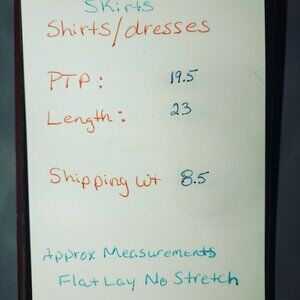 Skirts
Shirts/dresses
PTP: 19.5
Length: 23
Shipping wt 8.5
Approx Measurements
Flat Lay No Stretch